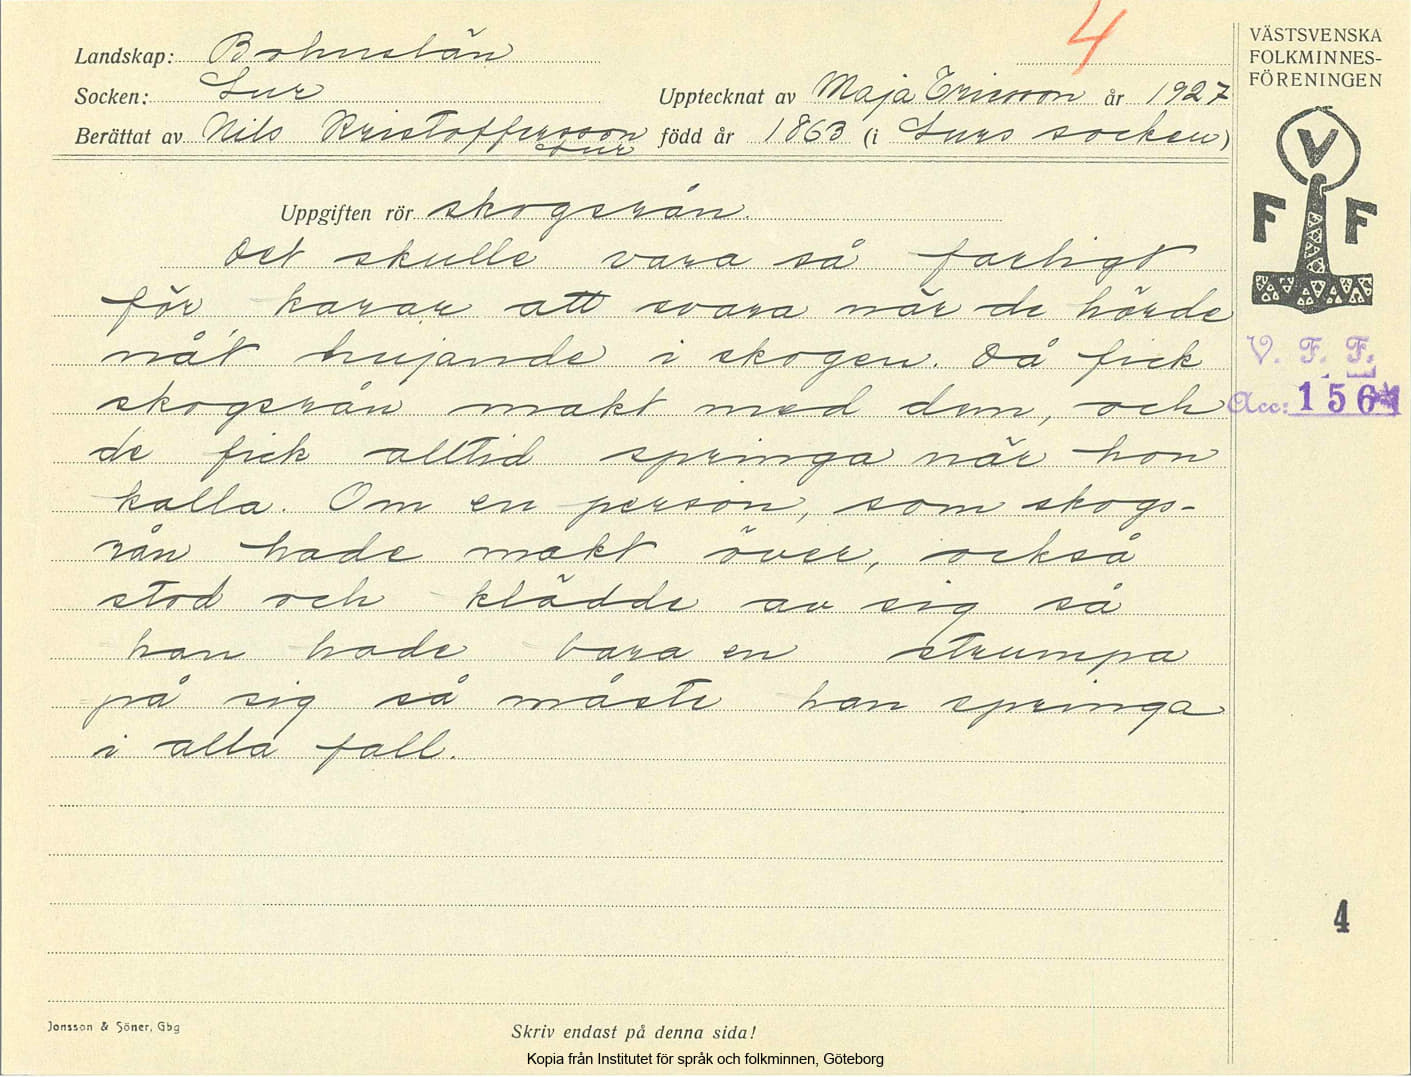 4
Landskap: Bohuslän
Socken: Lur
Upptecknat av Maja Ericsson år 1927
Berättat av Nils Kristoffersson Lur född år 1863 (i Lurs socken)
Uppgiften rör skogsrån.
Det skulle vara så farligt
för karar att svara när de hörde
nåt hujande i skogen. Då fick
skogsrån makt med dem, och
de fick alltid springa när hon
kalla. Om en person, som skogs-
rån hade makt över, också
stod och klädde av sig så
han hade bara en strumpa
på sig så måste han springa
i alla fall.
VÄSTSVENSKA
FOLKMINNES-
FÖRENINGEN
V
F F
V. F. F.
Acc: 156
4
Jonsson & Söner, Gbg
Skriv endast på denna sida!
Kopia från Institutet för språk och folkminnen, Göteborg